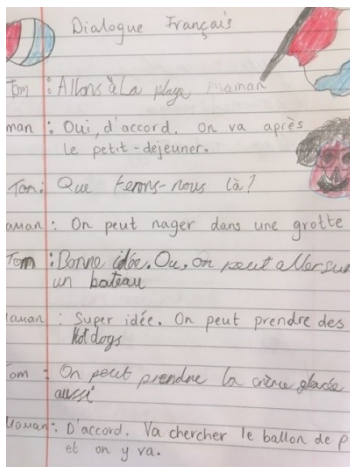 Dialogue Français
Tom : Allons à La plage maman
man : Oui, d'accord. On va après
le petit-déjeuner.
Tom : Que ferons-nous là?
aman : On peut nager dans une grotte
Tom : Bonne idée. Ou, on peut aller sur
un bateau
Maman : Super idée. On peut prendre des
Hot dogs
Tom : On peut prendre la crème glacée
aussi
Maman : D'accord. Va chercher le ballon de p
et on y va.